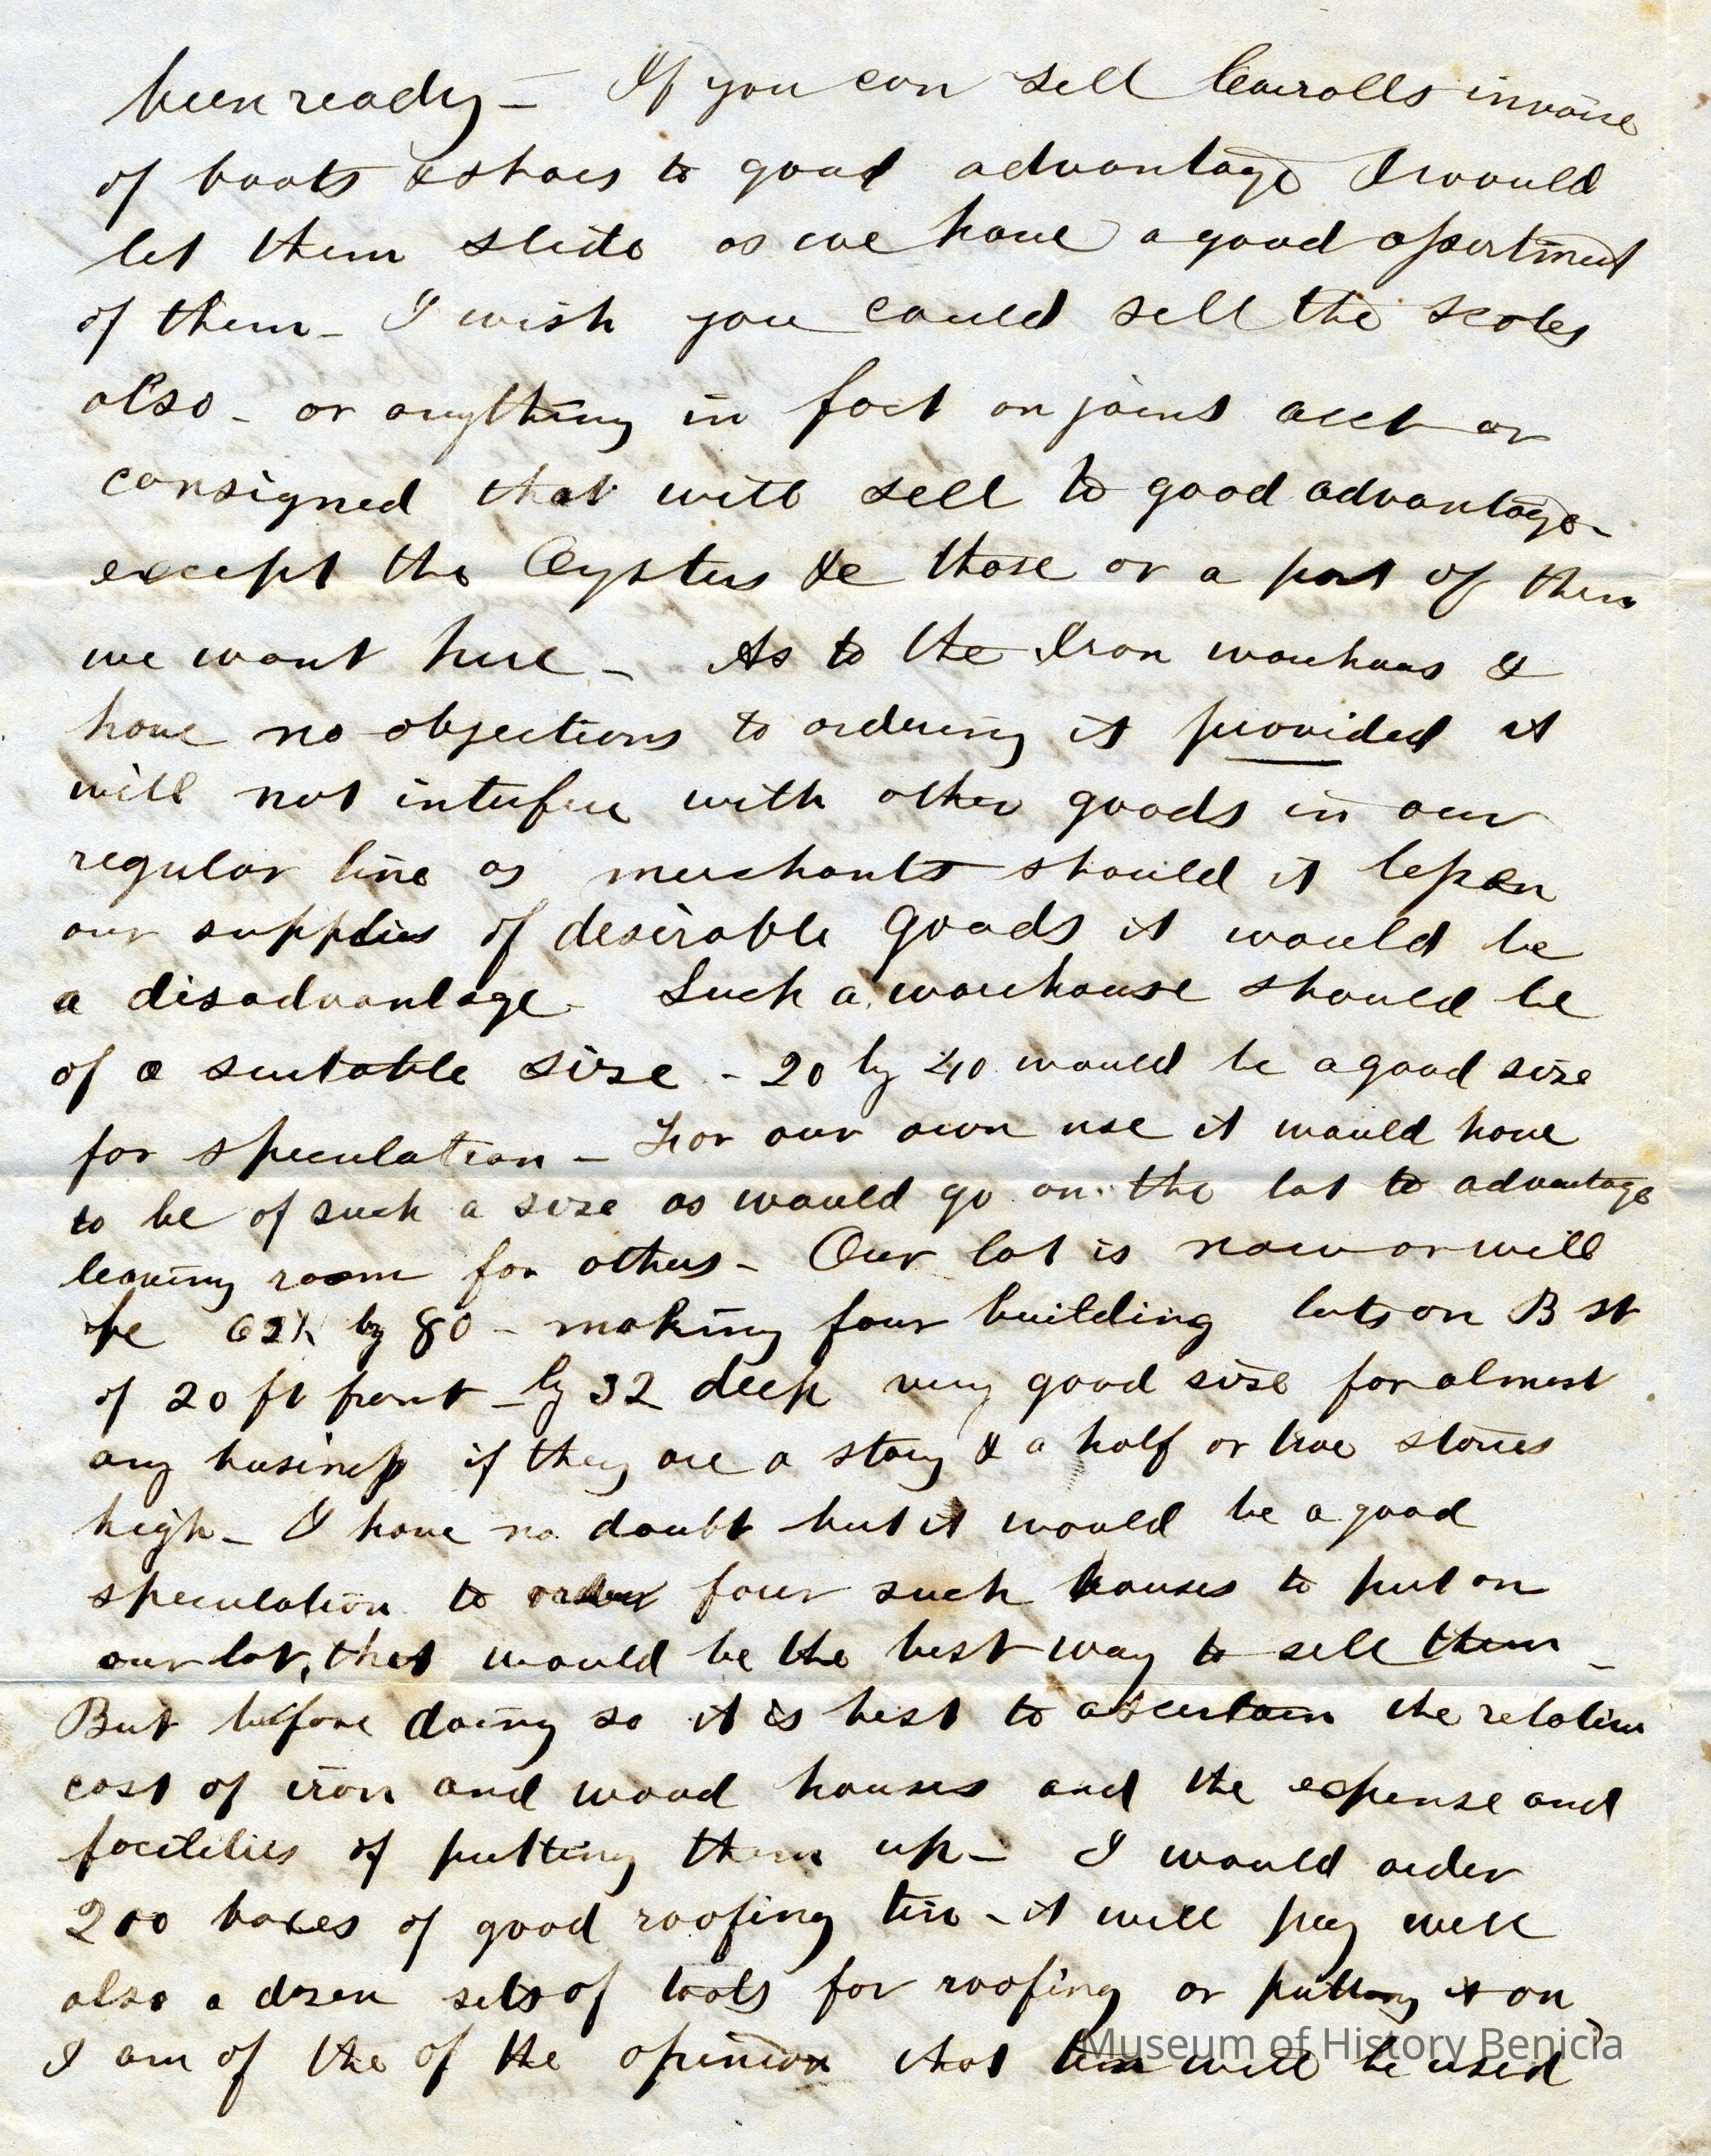 been ready - If you can sell Carrolls invoice
of boots & shoes to good advantage I would
let them slide as we have a good assortment
of them - I wish you could sell the scales
also - or anything in fact on joint acct or
consigned that will sell to good advantage -
except the Oysters &c those or a part of them
we want here - As to the Iron warehous I
have no objections to ordering it provided it
will not interfere with other goods in our
regular line as merchants should it lessen
our supplies of desirable goods it would be
a disadvantage - Such a warehouse should be
of a suitable size - 20 by 40 would be a good size
for speculation - For our own use it would have
to be of such a size as would go on the lot to advantage
leaving room for others - Our lot is now or will
be by 80 - making four building lots on B st
of 20 ft front - by 32 deep very good size for almost
any business if they are a story & a half or two stories
high - I have no doubt but it would be a good
speculation to order four such houses to put on
our lot, that would be the best way to sell them -
But before doing so it is best to ascertain the relative
cost of iron and wood houses and the expense and
facilities of putting them up - I would order
200 boxes of good roofing tin - it will pay well
also a dozen sets of tools for roofing or putting it on
I am of the of the opinion that tin will be used
Museum of History Benicia